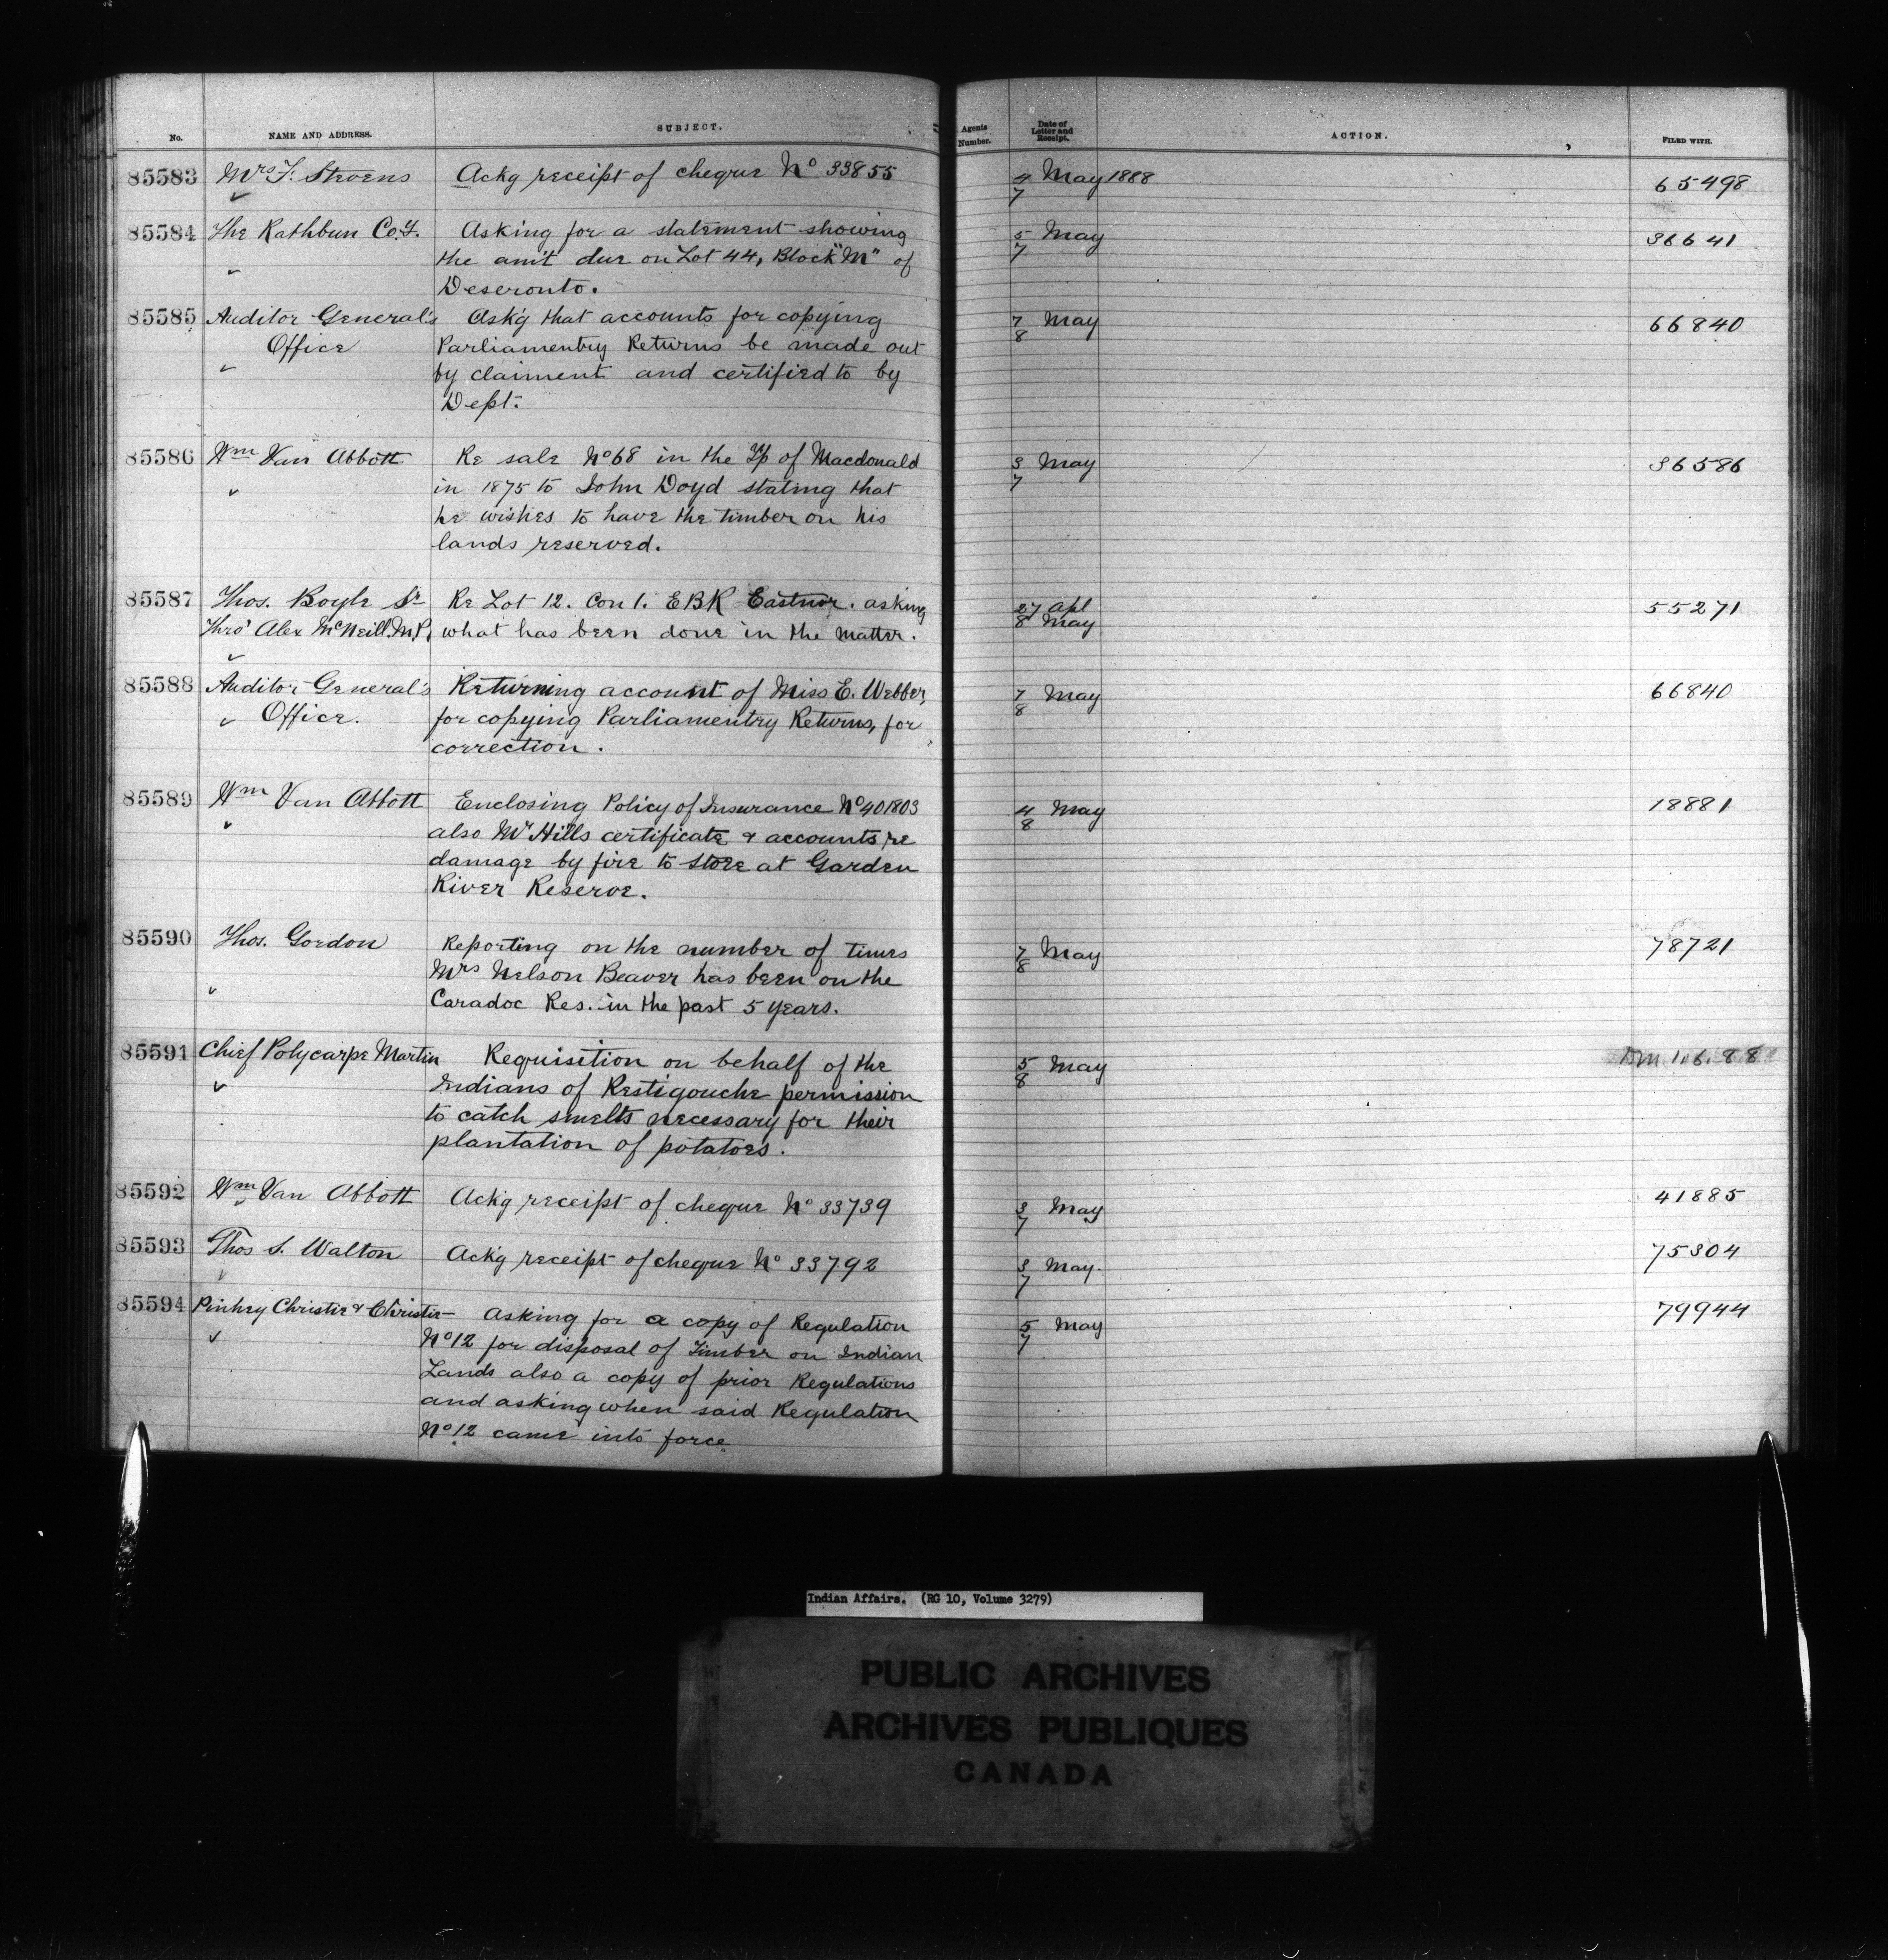 No. NAME AND ADDRESS. SUBJECT. Agents Number. Date of Letter and Receipt. ACTION. FILED WITH.
85583 Mrs F. Stevens Ackg receipt of cheque No 33855 4 May 1888 65498
7
85584 The Rathbun Coy. Asking for a statement showing 5 May 36641
the am't due on Lot 44, Block "M" of 7
Deseronto.
85585 Auditor General's Ask'g that accounts for copying 7 May 66840
Office Parliamentry Returns be made out 8
by claiment and certified to by
Dept.
85586 Wm Van Abbott Re sale No 68 in the Tp of Macdonald 3 May 36586
in 1875 to John Doyd stating that 7
he wishes to have the timber on his
lands reserved.
85587 Thos. Boyle Sr Re Lot 12. Con 1. EBR Eastnor. asking 27 Apl 55271
Thro' Alex McNeill M.P. what has been done in the matter. 8 May
85588 Auditor General's Returning account of Miss E. Webber, 7 May 66840
Office. for copying Parliamentry Returns, for 8
correction.
85589 Wm Van Abbott Enclosing Policy of Insurance No 401803 4 May 18881
also Mr Hills certificate & accounts re 8
damage by fire to store at Garden
River Reserve.
85590 Thos. Gordon Reporting on the number of times 7 May 78721
Mrs Nelson Beaver has been on the 8
Caradoc Res. in the past 5 years.
85591 Chief Polycarpe Martin Requisition on behalf of the 5 May 1.6.88
Indians of Restigouche permission 8
to catch smelts necessary for their
plantation of potatoes.
85592 Wm Van Abbott Ack'g receipt of cheque No 33739 3 May 41885
7
85593 Thos S. Walton Ack'g receipt of cheque No 33792 3 May. 75304
7
85594 Pinhey Christie & Christie— Asking for a copy of Regulation 5 May 79944
No 12 for disposal of Timber on Indian 7
Lands also a copy of prior Regulations
and asking when said Regulation
No 12 came into force
Indian Affairs. (RG 10, Volume 3279)
PUBLIC ARCHIVES
ARCHIVES PUBLIQUES
CANADA